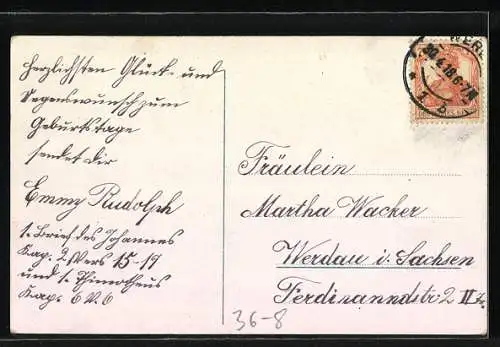 Herzlichsten Glück- und
Segenswunsch zum
Geburtstage
sendet dir
Emmy Rudolph
1. Brief des Johannes
Kap. 2 Vers 15-17
und 1. Thimotheus
Kap. 6 V. 6
WERD
20.4.18.6-7N
* b
Fräulein
Martha Wacker
Werdau i. Sachsen
Ferdinanndstr. 2 II
36-8